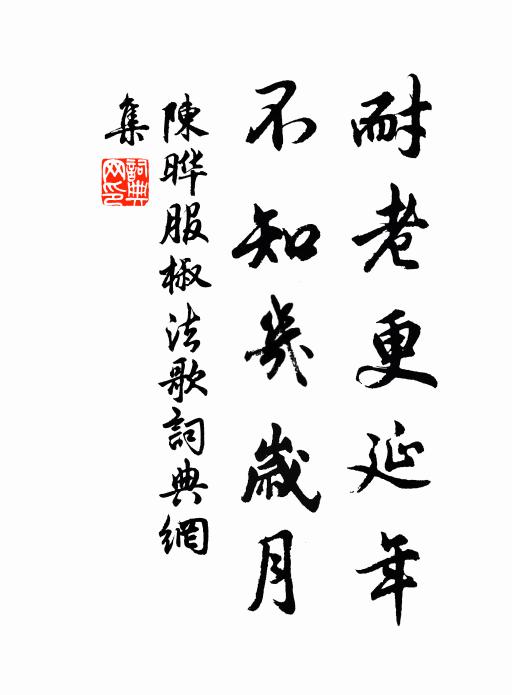 耐老更延年
不知幾歲月
陳晔服椒法歌詞典網
集
詞典网印